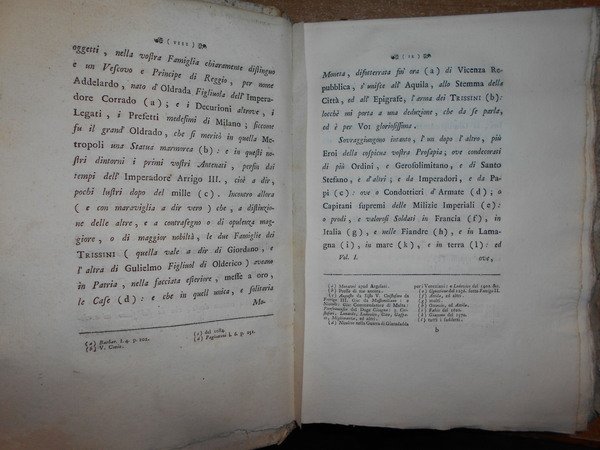 ( VIII )
oggetti, nella vostra Famiglia chiaramente distinguo
e un Vescovo e Principe di Reggio, per nome
Addelardo, nato d'Oldrada Figliuola dell'Impera-
dore Corrado (a); e i Decurioni altrove, i
Legati, i Prefetti medesimi di Milano; siccome
fu il grand' Oldrado, che si meritò in quella Me-
tropoli una Statua marmorea (b): e in questi no-
stri dintorni i primi vostri Antenati, persin dai
tempi dell' Imperadore Arrigo III. ciò a dir,
pochi lustri dopo del mille (c). Incontro allora
( e con maraviglia a dir vero ) che, a distinzio-
ne delle altre, e a contrasegno o di opulenza mag-
giore, o di maggior nobiltà, le due Famiglie dei
TRISSINI ( quella vale a dir di Giordano, e
l'altra di Gulielmo Figliuol di Olderico) aveano
in Patria, nella facciata esteriore, messe a oro,
le Case (d): e che in quell' unica, e solitaria
Mo-
(a) Barbar. l. 4. p. 102.
(b) V. Corio.
(c) del 1084.
(d) Pagliarini l. 6. p. 251.
( IX )
Moneta, disotterrata fin ora (a) di Vicenza Re-
pubblica, s'unisce all' Aquila, allo Stemma della
Città, ed all' Epigrafe, l'arma dei TRISSINI (b):
locchè mi porta a una deduzione, che da se parla,
ed è per VOI gloriosissima.
Sopraggiungono intanto, l' un dopo l'altro, più
Eroi della cospicua vostra Prosapia; ove condecorati
di più Ordini, e Gerosolimitano, e di Santo
Stefano, e d'altri; e da Imperadori, e da Pa-
pi (c): ove o Condottieri d'Armate (d); o
Capitani supremi delle Milizie Imperiali (e):
o prodi, e valorosi Soldati in Francia (f), in
Italia (g), e nelle Fiandre (h), e in Lama-
gna (i), in mare (k), e in terra (l): ed
Vol. I.
ove,
(a) Muratori apud Argelati.
(b) Presso di me ancora.
(f) Achille, ed altri.
(g) molti.
(l) tutti i suddetti.
b